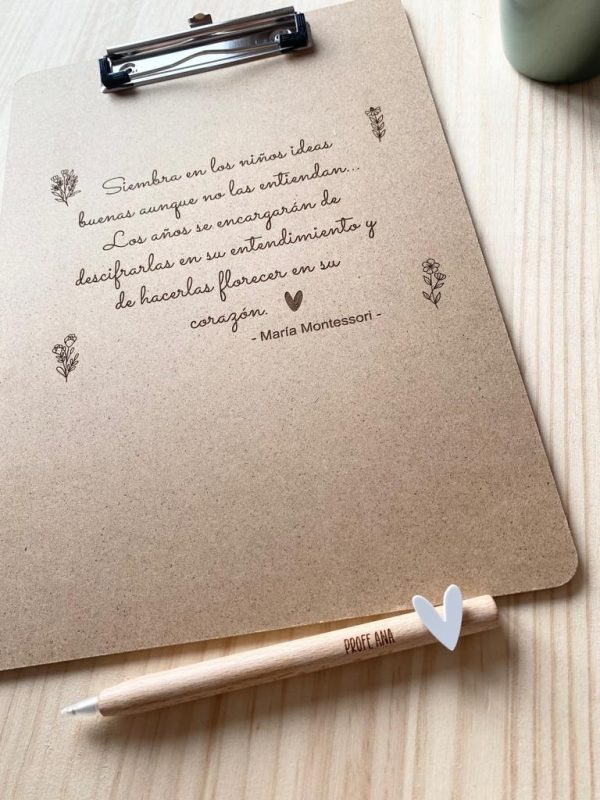 Siembra en los niños ideas
buenas aunque no las entiendan...
Los años se encargarán de
descifrarlas en su entendimiento y
de hacerlas florecer en su
corazón.
- María Montessori -
PROFE ANA